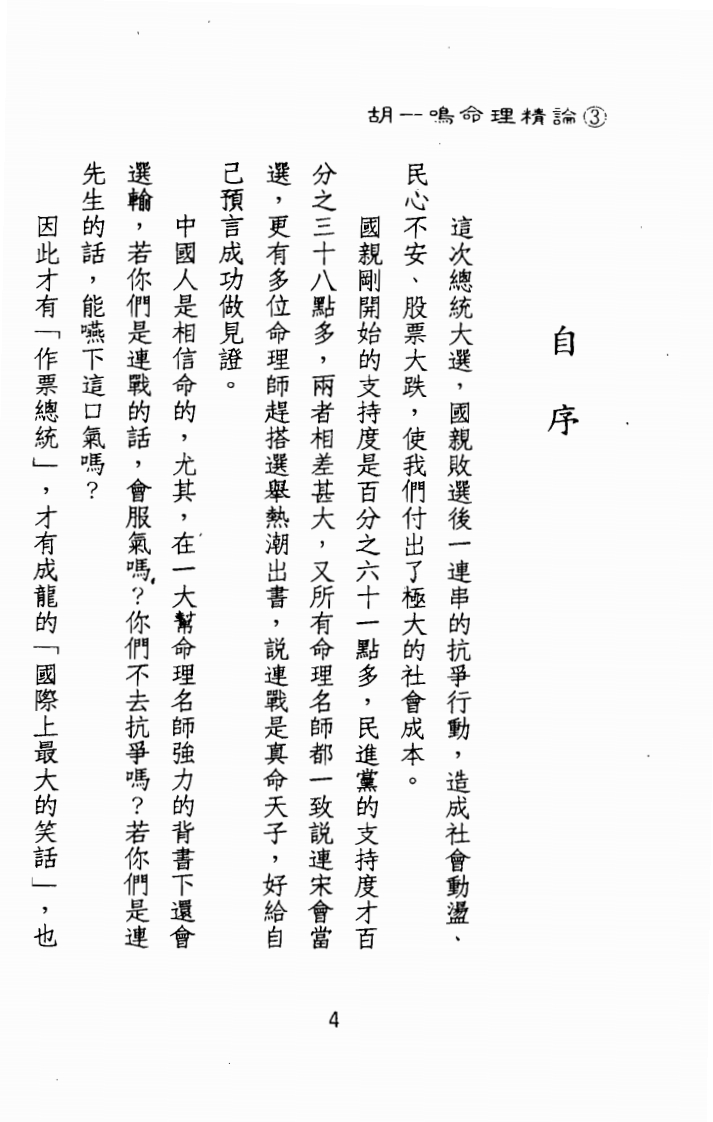 胡一鳴命理精論③
自序
這次總統大選，國親敗選後一連串的抗爭行動，造成社會動盪、
民心不安、股票大跌，使我們付出了極大的社會成本。
國親剛開始的支持度是百分之六十一點多，民進黨的支持度才百
分之三十八點多，兩者相差甚大，又所有命理名師都一致説連宋會當
選，更有多位命理師趕搭選舉熱潮出書，説連戰是真命天子，好給自
己預言成功做見證。
中國人是相信命的，尤其，在一大幫命理名師強力的背書下還會
選輸，若你們是連戰的話，會服氣嗎？你們不去抗爭嗎？若你們是連
先生的話，能嚥下這口氣嗎？
因此才有「作票總統」，才有成龍的「國際上最大的笑話」，也
4